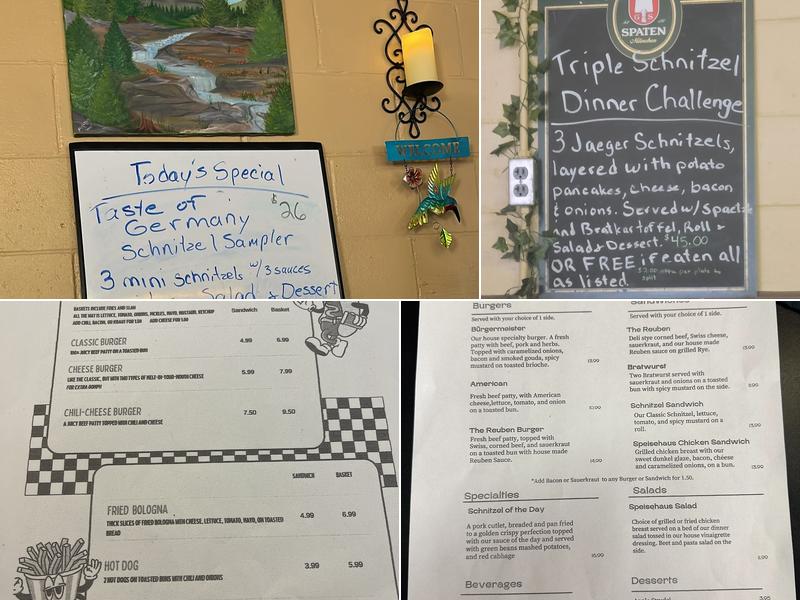 Today's Special
Taste of
Germany
$26
Schnitzel Sampler
3 mini schnitzels w/3 sauces
Salad & Dessert
WELCOME
SPATEN
München
Triple Schnitzel
Dinner Challenge
3 Jaeger Schnitzels,
layered with potato
pancakes, cheese, bacon
& onions. Served w/spaetzle
and Bratkartoffel, Roll &
Salad & Dessert. $45.00
OR FREE if eaten all
as listed.
split
BASKETS INCLUDE FRIES AND SLAW
ALL THE WAY IS LETTUCE, TOMATO, ONIONS, PICKLES, MAYO, MUSTARD, KETCHUP
ADD CHILI, BACON, OR KRAUT FOR 1.50 ADD CHEESE FOR 1.00
Sandwich Basket
CLASSIC BURGER 4.99 6.99
100% JUICY BEEF PATTY ON A TOASTED BUN
CHEESE BURGER 5.99 7.99
LIKE THE CLASSIC, BUT WITH TWO TYPES OF MELT-IN-YOUR-MOUTH CHEESE
FOR EXTRA OOMPH
CHILI-CHEESE BURGER 7.50 9.50
A JUICY BEEF PATTY TOPPED WITH CHILI AND CHEESE
SANDWICH BASKET
FRIED BOLOGNA 4.99 6.99
THICK SLICES OF FRIED BOLOGNA WITH CHEESE, LETTUCE, TOMATO, MAYO, ON TOASTED
BREAD
HOT DOG 3.99 5.99
2 HOT DOGS ON TOASTED BUNS WITH CHILI AND ONIONS
Burgers
Served with your choice of 1 side.
Bürgermeister
Our house specialty burger. A fresh
patty with beef, pork and herbs.
Topped with caramelized onions,
bacon and smoked gouda, spicy
mustard on toasted brioche.
American
Fresh beef patty, with American
cheese,lettuce, tomato, and onion
on a toasted bun.
The Reuben Burger
Fresh beef patty, topped with
Swiss, corned beef, and sauerkraut
on a toasted bun with house made
Reuben Sauce.
14.00
Sandwiches
Served with your choice of 1 side.
The Reuben
Deli stye corned beef, Swiss cheese,
sauerkraut, and our house made
Reuben sauce on grilled Rye.
13.00
Bratwurst
Two Bratwurst served with
sauerkraut and onions on a toasted
bun with spicy mustard on the side.
Schnitzel Sandwich
Our Classic Schnitzel, lettuce,
tomato, and spicy mustard on a
roll.
13.00
Speisehaus Chicken Sandwich
Grilled chicken breast with our
sweet dunkel glaze, bacon, cheese
and caramelized onions, on a bun.
13.00
*Add Bacon or Sauerkraut to any Burger or Sandwich for 1.50.
Specialties
Schnitzel of the Day
A pork cutlet, breaded and pan fried
to a golden crispy perfection topped
with our sauce of the day and served
with green beans mashed potatoes,
and red cabbage
Salads
Speisehaus Salad
Choice of grilled or fried chicken
breast served on a bed of our dinner
salad tossed in our house vinaigrette
dressing. Beet and pasta salad on the
side.
Beverages
Desserts
3.95